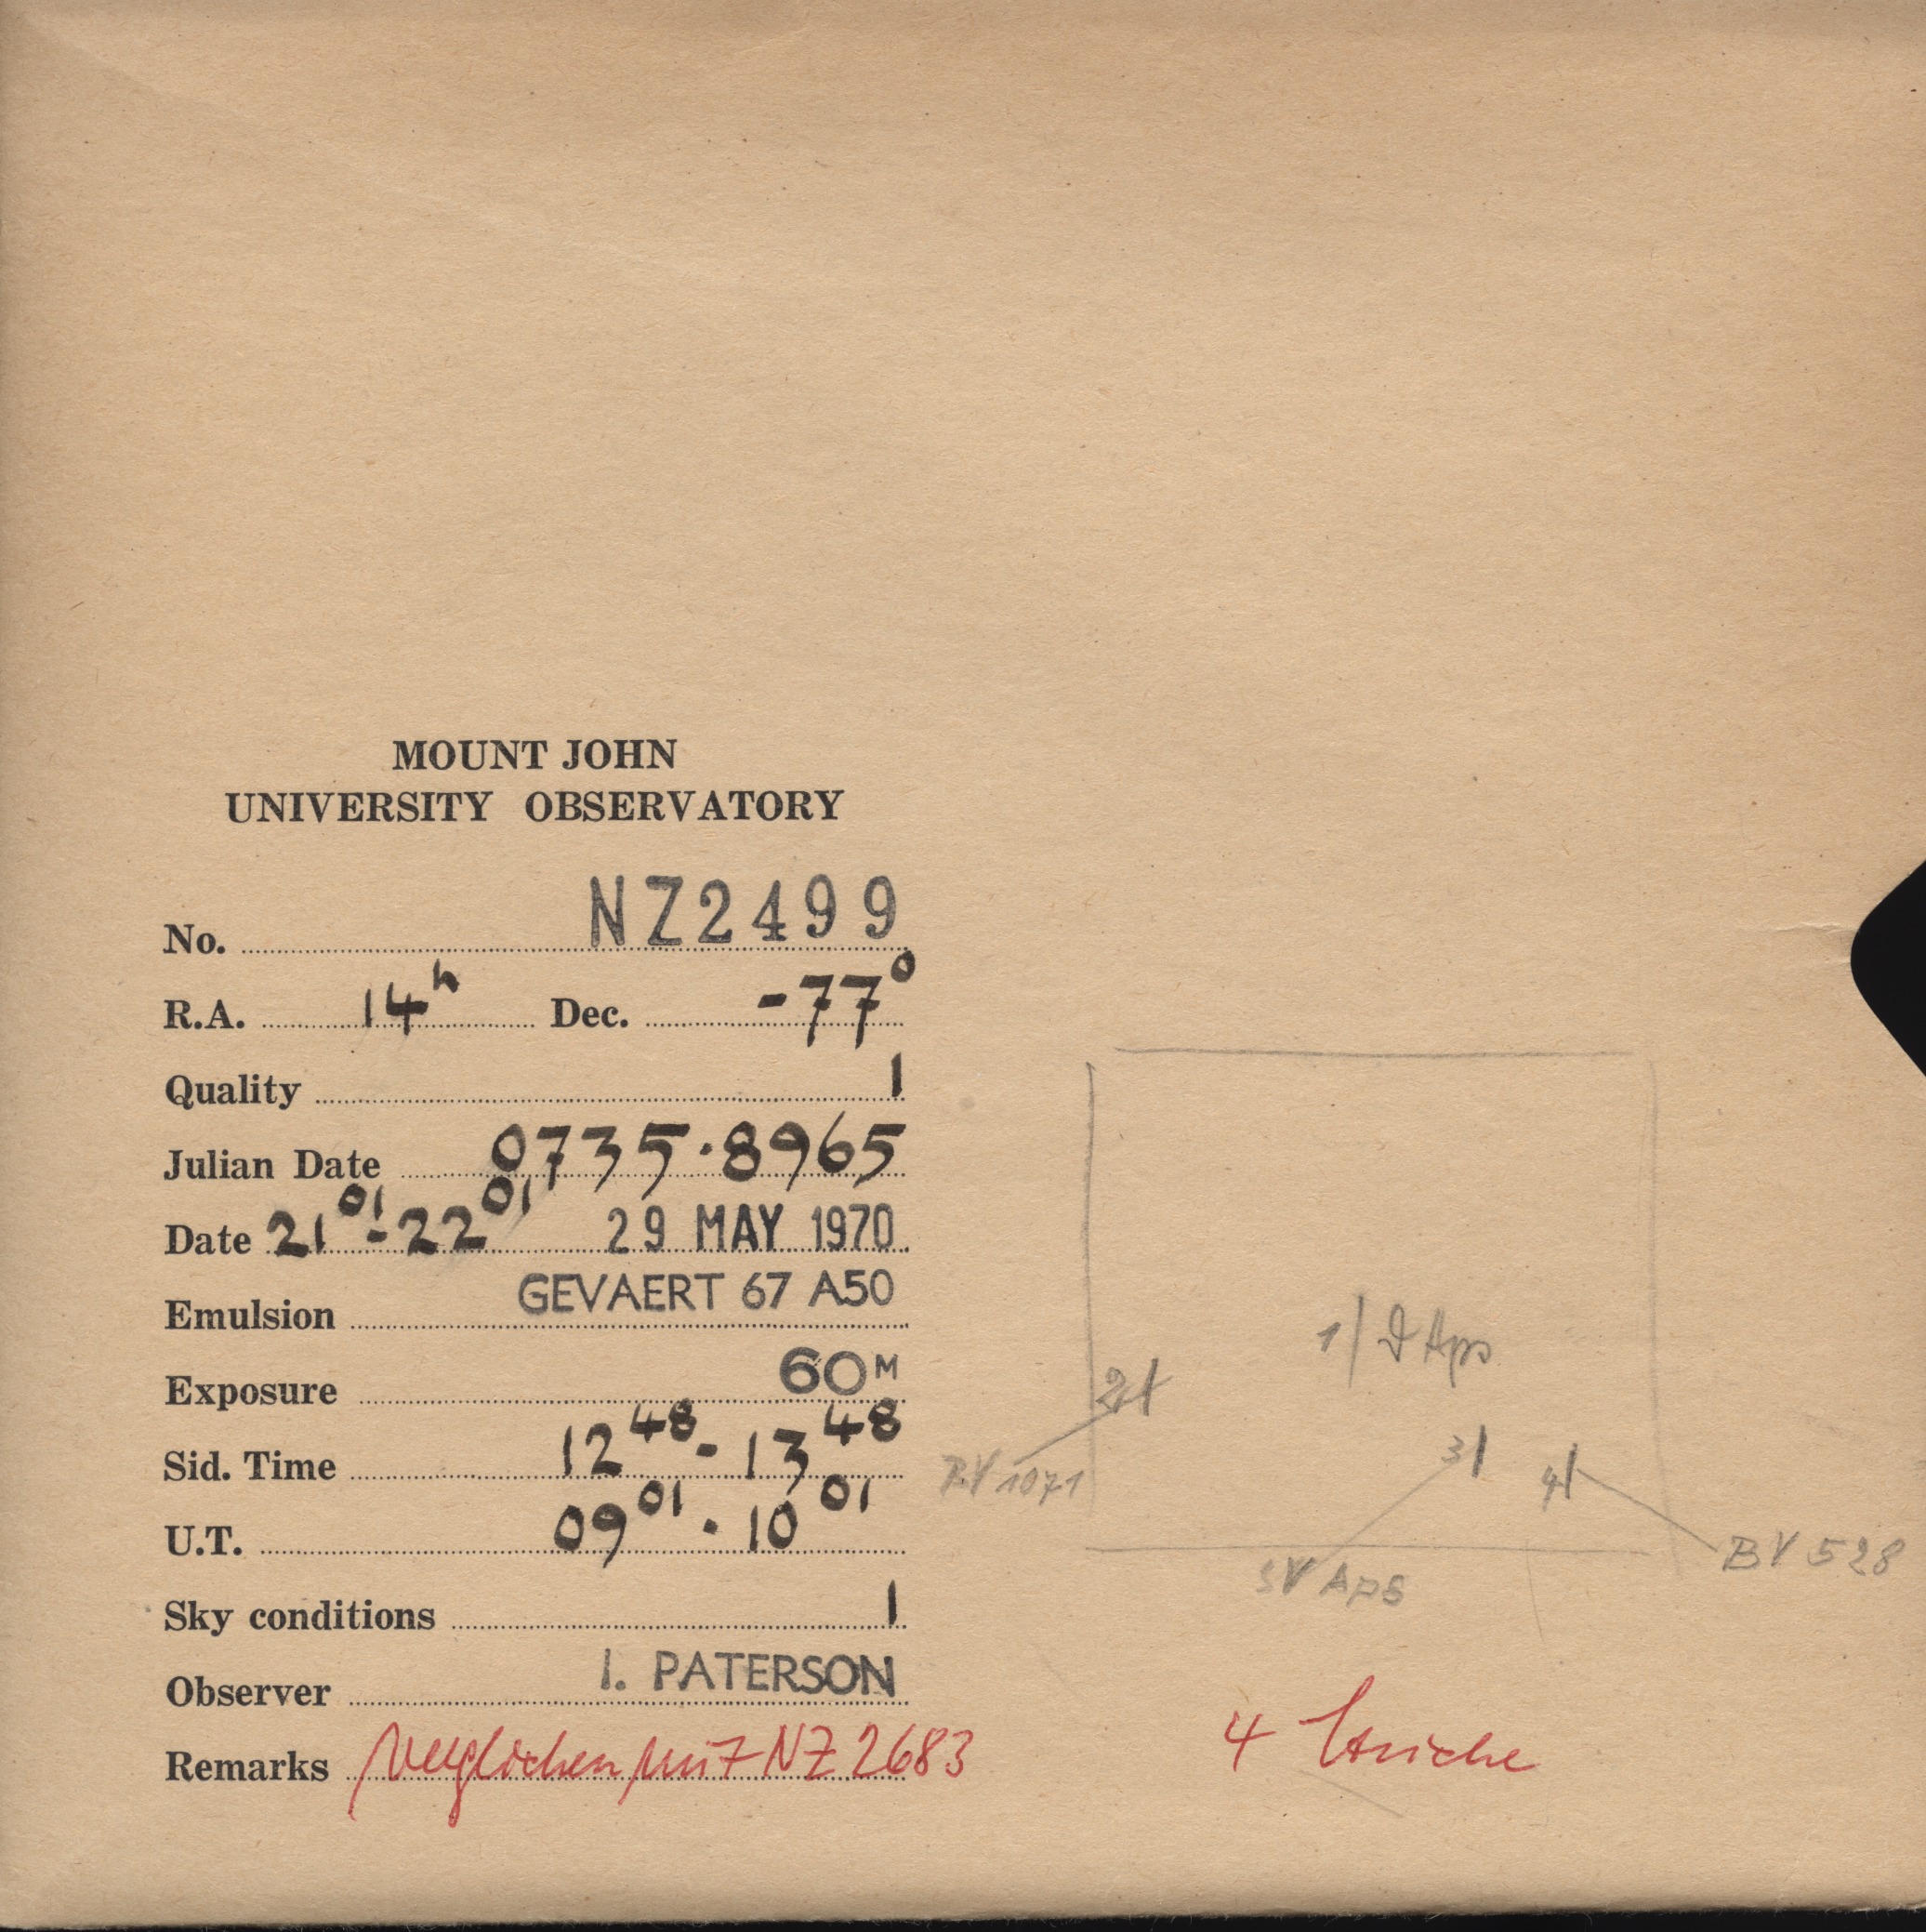 MOUNT JOHN
UNIVERSITY OBSERVATORY
No. NZ2499
R.A. 14h Dec. -77°
Quality 1
Julian Date 0735.8965
Date 21 01 - 22 01 29 MAY 1970
Emulsion GEVAERT 67 A50
Exposure 60M
Sid. Time 12 48 - 13 48
U.T. 09 01 - 10 01
Sky conditions 1
Observer I. PATERSON
Remarks verglichen mit NZ 2683
1 Aps
2
BV 1071
3
4
BV 528
SV Aps
4 Striche